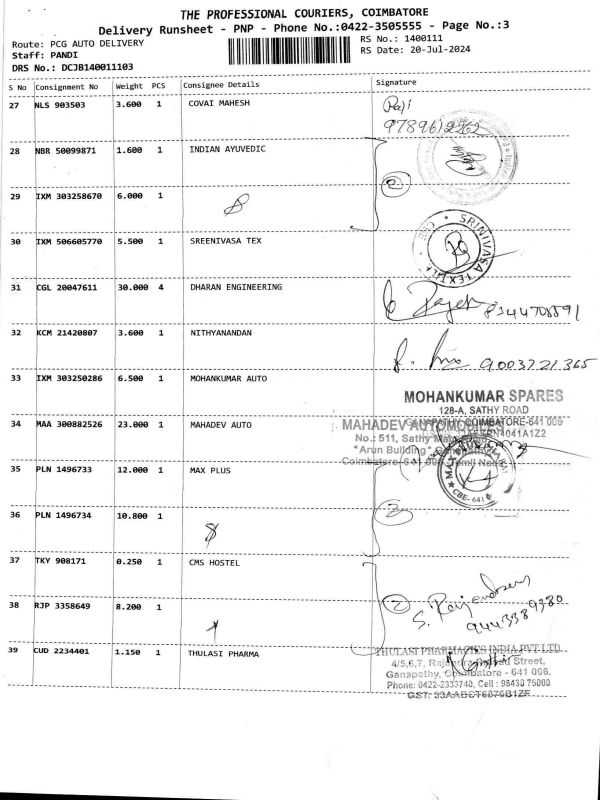 THE PROFESSIONAL COURIERS, COIMBATORE
Delivery Runsheet - PNP - Phone No.:0422-3505555 - Page No.:3
Route: PCG AUTO DELIVERY
RS No.: 1400111
Staff: PANDI
RS Date: 20-Jul-2024
DRS No.: DCJB140011103
S No Consignment No Weight PCS Consignee Details Signature
27 NLS 903503 3.600 1 COVAI MAHESH Raji
9789612262
28 NBR 50099871 1.600 1 INDIAN AYUVEDIC
2
29 IXM 303258670 6.000 1
30 IXM 506605770 5.500 1 SREENIVASA TEX
SRINIVASA TEXTILE CBE
31 CGL 20047611 30.000 4 DHARAN ENGINEERING
32 KCM 21420807 3.600 1 NITHYANANDAN
9003721365
33 IXM 303250286 6.500 1 MOHANKUMAR AUTO
MOHANKUMAR SPARES
128-A, SATHY ROAD
GANAPATHY, COIMBATORE-641 006
34 MAA 300882526 23.000 1 MAHADEV AUTO
MAHADEV AUTOMOBILES
No.: 511, Sathy Main Road
"Arun Building"
Coimbatore-641 006, Tamil Nadu
35 PLN 1496733 12.000 1 MAX PLUS
CBE-641
36 PLN 1496734 10.800 1
2
37 TKY 908171 0.250 1 CMS HOSTEL
38 RJP 3358649 8.200 1
2
S. Rajendran
9443389380
39 CUD 2234401 1.150 1 THULASI PHARMA
THULASI PHARMACIES INDIA PVT LTD
4/5,6,7, Rajendra Prasad Street,
Ganapathy, Coimbatore - 641 006.
Phone: 0422-2333740, Cell : 98430 76000